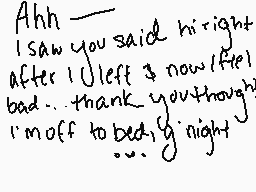 Ahh —
I saw you said hi right
after I left & now I feel
bad... thank you though!
I'm off to bed, g'night
...